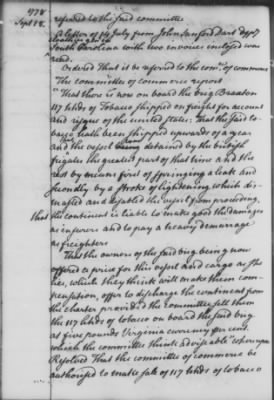 1778
Sept 18.
referred to the said committee
A letter of 14 July from John Sanford Dart dy p m
South Carolina with two invoices inclosed was
read.
Ordered That it be referred to the comee of commerce
The committee of commerce report
"That there is now on board the brig Braxton
117 hhds of Tobacco shipped on freight for account
and risque of the united states; That the said to-
bacco hath been shipped upwards of a year
and the vessel detained by the british
frigates the greatest part of that time and the
rest by means first of springing a leak and
secondly by a stroke of lightening which dis-
masted and disabled the vessel from proceeding,
that the continent is liable to make good the damages
as insurers and to pay a heavy demurrage
as freighters
That the owners of the said brig being now
offered a price for this vessel and cargo as she
lies, which they think will make them com-
pensation, offer to discharge the continent from
the charter provided the committee sell them
the 117 hhds of tobacco on board the said brig
at five pounds Virginia currency per cent.
which the committee think adviseable" whereupon
Resolved That the committee of commerce be
authorised to make sale of 117 hhds of tobacco